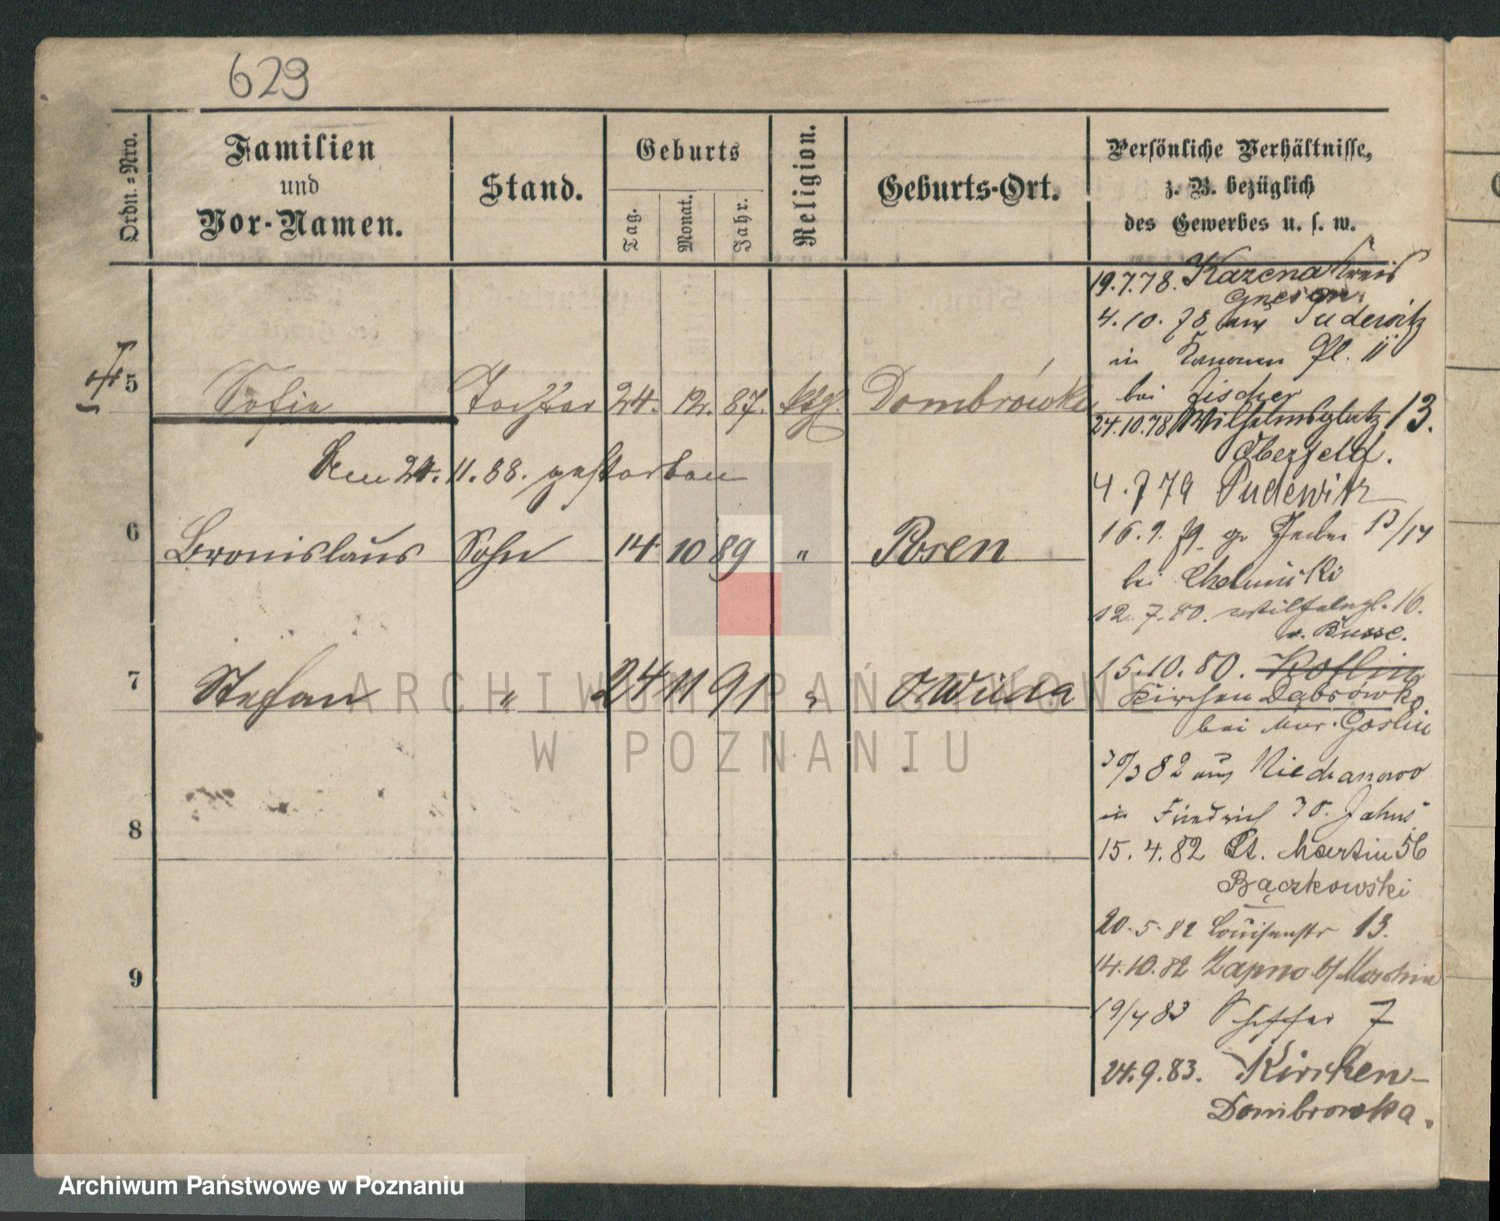 629
Ordn.-Nro.
Familien
und
Vor-Namen.
Stand.
Geburts
Tag.
Monat.
Jahr.
Religion.
Geburts-Ort.
Persönliche Verhältnisse,
z. B. bezüglich
des Gewerbes u. s. w.
5 Sofie Tochter 24. 12. 87. kth. Dombrówka
Den 24. 11. 88. gestorben
6 Bronislaus Sohn 14 10 89 " Posen
7 Stefan " 24 11 91 " O Wilda
8
9
19.7.78. Kreis
Gnesen
4.10.78 aus Pudewitz
in Kanonen Pl. 11
bei Fischer
24.10.78 Wilhelmsplatz 13.
Oberfeld.
4.7 79 Pudewitz
16.9.79. 13/14
bei Chelmiński
12.7.80. Wilhelmpl. 16.
b. Busse.
15.10.80.
Kirchen Dąbrówka
bei Mur. Goslin
30/3 82 aus
in Friedrich 30. Jahns
15.4.82 St. Martin 56
Bączkowski
20.5.82 Louisenstr 13.
14.10.82
19/4 83 7
24.9.83. Kirchen-
Dombrowka.
ARCHIWUM PAŃSTWOWE
W POZNANIU
Archiwum Państwowe w Poznaniu